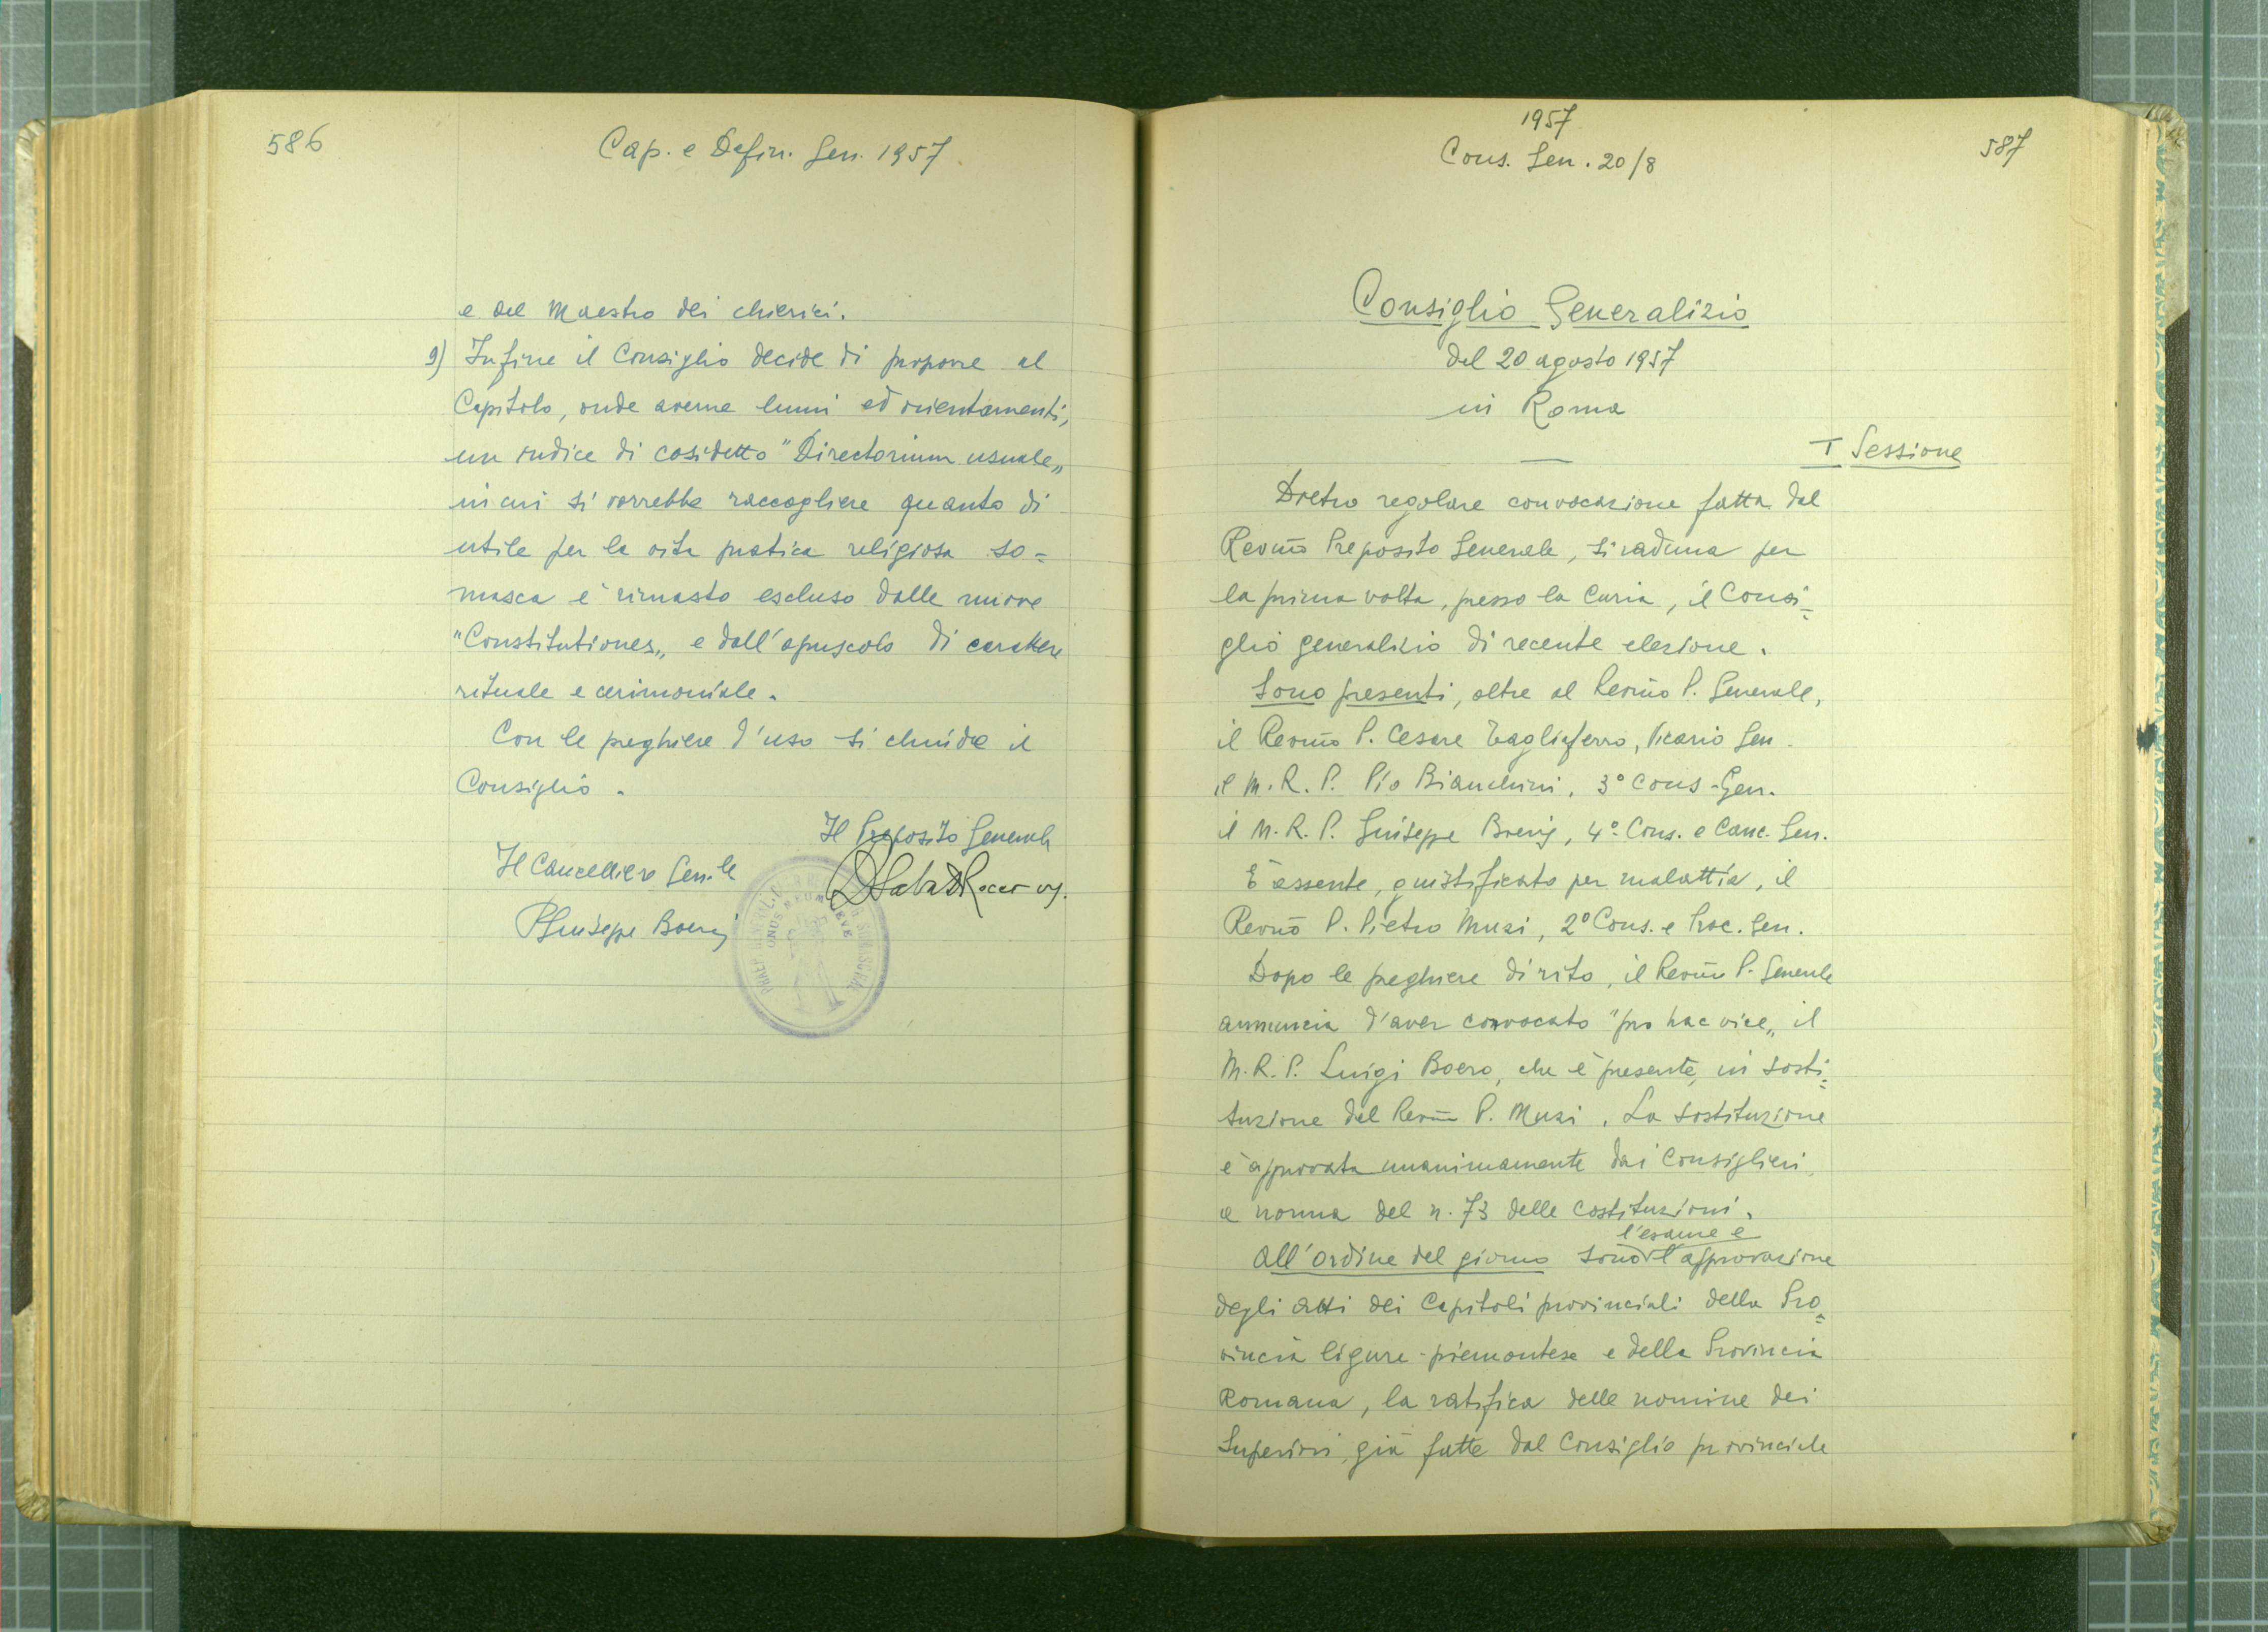 586
Cap. e Defin. Gen. 1957
e del Maestro dei chierici.
9) Infine il Consiglio decide di proporre al
Capitolo, onde averne lumi ed orientamenti,
un indice di cosidetto "Directorium usuale„
in cui si vorrebbe raccogliere quanto di
utile per la vita pratica religiosa so=
masca è rimasto escluso dalle nuove
"Constitutiones„ e dall'opuscolo di carattere
rituale e cerimoniale.
Con le preghiere d'uso si chiude il
Consiglio.
Il Preposito Generale
Il Cancelliere Gen.le
P. Giuseppe Boeris
ONUS MEUM LEVE
1957
Cons. Gen. 20/8
587
Consiglio Generalizio
del 20 agosto 1957
in Roma
I Sessione
Dietro regolare convocazione fatta dal
Revmo Preposito Generale, si raduna per
la prima volta, presso la Curia, il Consi=
glio generalizio di recente elezione.
Sono presenti, oltre al Revmo P. Generale,
il Revmo P. Cesare Tagliaferro, Vicario Gen.
il M. R. P. Pio Bianchini, 3° Cons. Gen.
il M. R. P. Giuseppe Boeris, 4° Cons. e Canc. Gen.
È assente, giustificato per malattia, il
Revmo P. Pietro Muzi, 2° Cons. e Proc. Gen.
Dopo le preghiere di rito, il Revmo P. Generale
annuncia d'aver convocato "pro hac vice„ il
M. R. P. Luigi Boero, che è presente, in sosti=
tuzione del Revmo P. Muzi. La sostituzione
è approvata unanimamente dai Consiglieri
a norma del n. 73 delle Costituzioni.
All'ordine del giorno sono l'esame e l'approvazione
degli Atti dei Capitoli provinciali della Pro=
vincia ligure-piemontese e della Provincia
Romana, la ratifica delle nomine dei
Superiori già fatte dal Consiglio provinciale